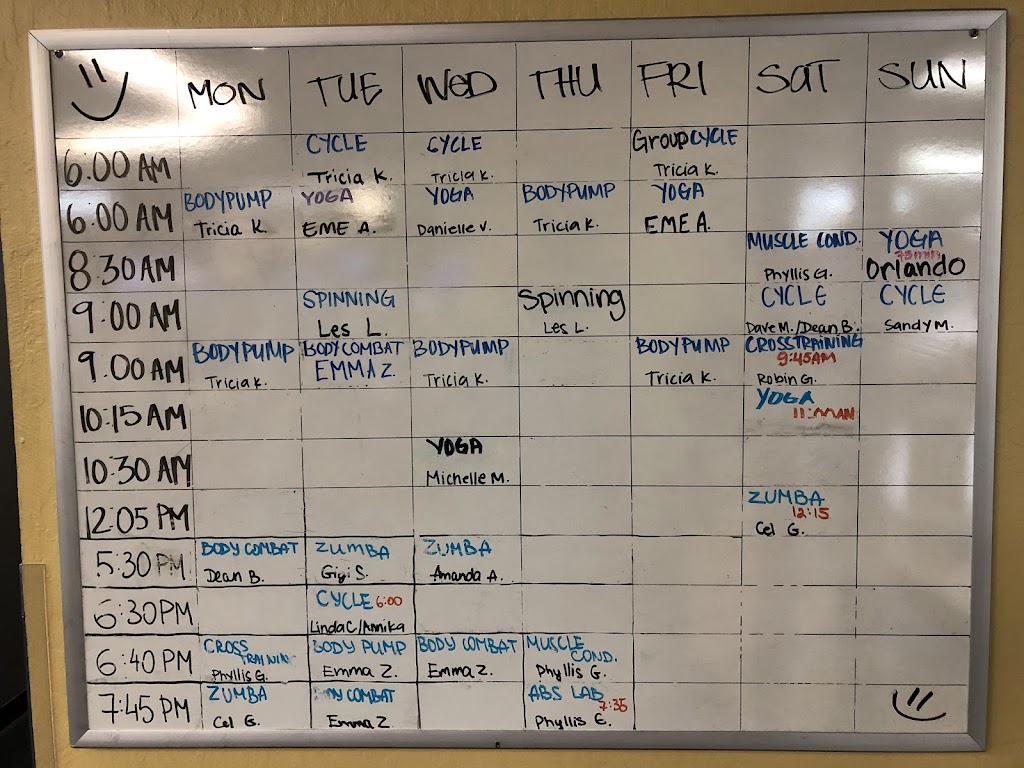 MON TUE WED THU FRI SAT SUN
6:00 AM
CYCLE CYCLE Group CYCLE
Tricia K. Tricia K. Tricia K.
6:00 AM
BODYPUMP YOGA YOGA BODYPUMP YOGA
Tricia K. EME A. Danielle V. Tricia K. EME A.
8:30 AM
MUSCLE COND. YOGA
75 min
Phyllis G. Orlando
9:00 AM
SPINNING Spinning CYCLE CYCLE
Les L. Les L. Dave M./Dean B. Sandy M.
9:00 AM
BODYPUMP BODYCOMBAT BODYPUMP BODYPUMP CROSSTRAINING
9:45AM
Tricia K. EMMA Z. Tricia K. Tricia K. Robin G.
10:15 AM
YOGA
10:30 AM
YOGA
Michelle M.
12:05 PM
ZUMBA
12:15
Cel G.
5:30 PM
BODY COMBAT ZUMBA ZUMBA
Dean B. Gigi S. Amanda A.
6:30 PM
CYCLE 6:00
Linda C/Annika
6:40 PM
CROSS BODY PUMP BODY COMBAT MUSCLE
TRAININ COND.
Phyllis G. Emma Z. Emma Z. Phyllis G.
7:45 PM
ZUMBA COMBAT ABS LAB
7:35
Cel G. Emma Z. Phyllis G.